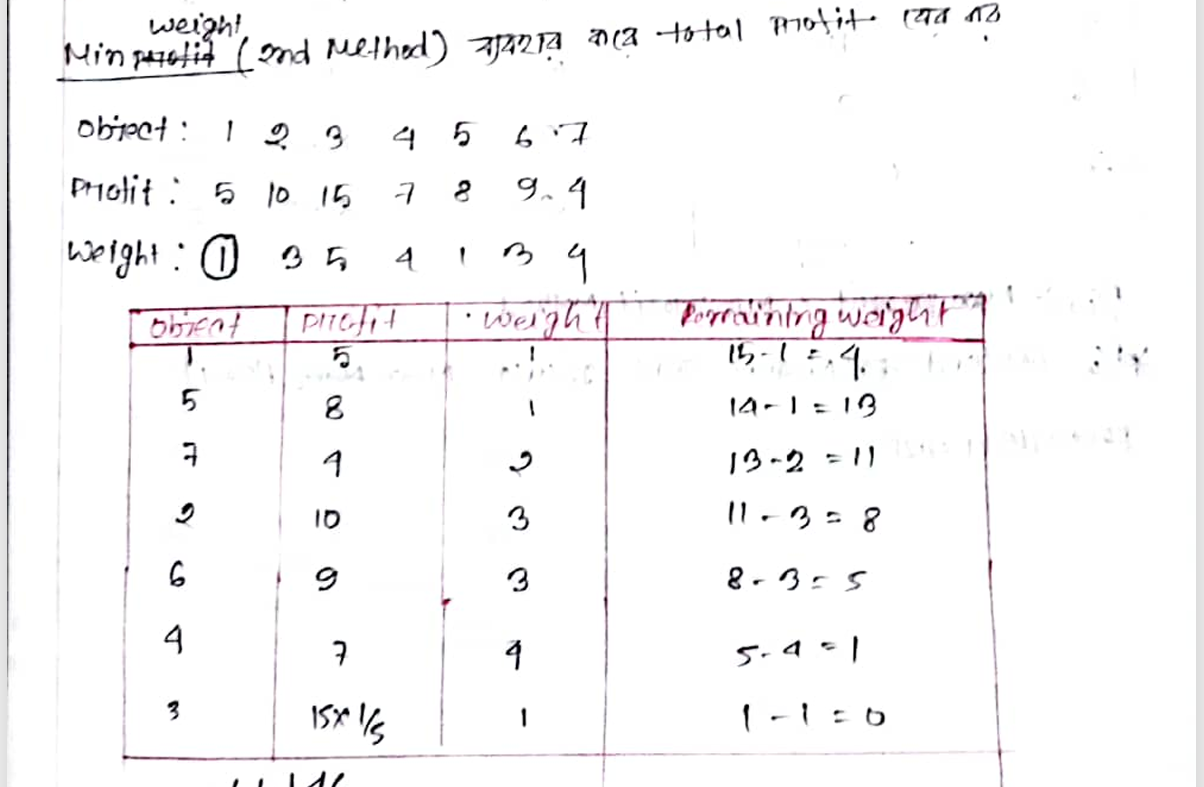 weight
Min profit (2nd Method) ব্যবহার করে total profit বের কর
Object : 1 2 3 4 5 6 7
Profit : 5 10 15 7 8 9 4
Weight : 1 3 5 4 1 3 4
Object Profit Weight Remaining weight
1 5 1 15-1 = 4
5 8 1 14-1 = 13
7 4 2 13-2 = 11
2 10 3 11-3 = 8
6 9 3 8-3 = 5
4 7 4 5-4 = 1
3 15x1/5 1 1-1 = 0